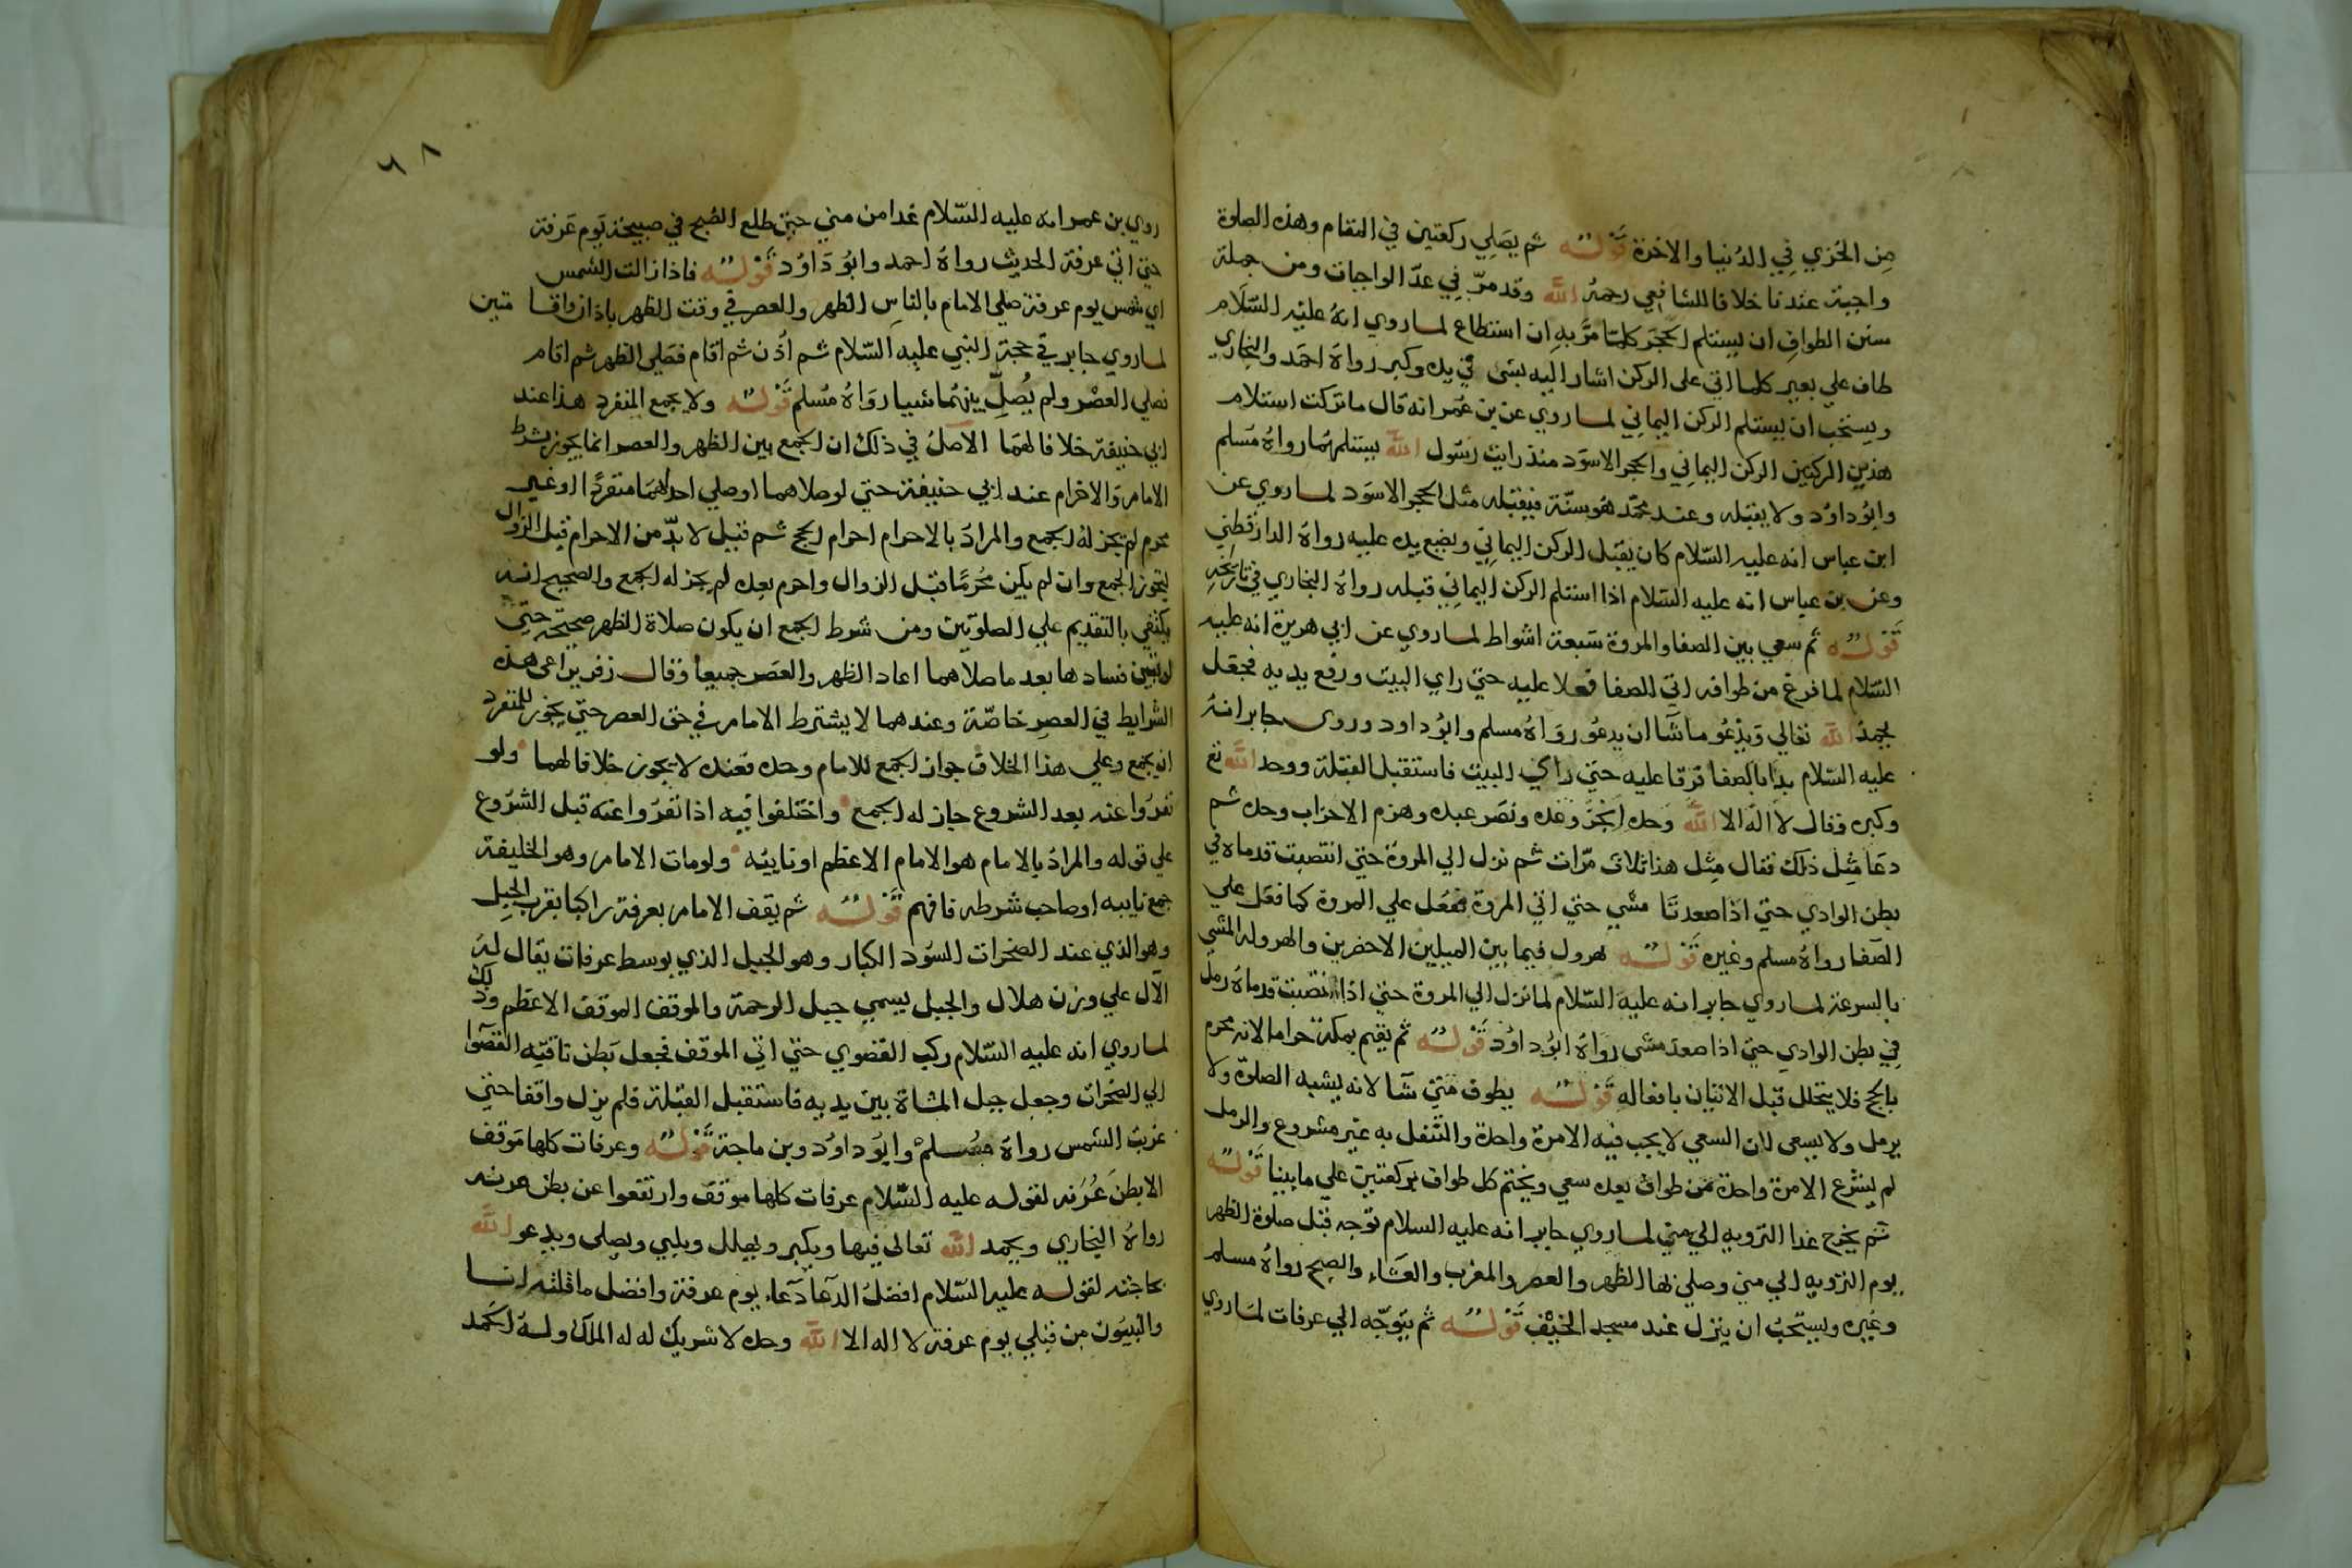 من الخزي في الدنيا والاخرة قوله ثم يصلي ركعتين في المقام وهذه الصلوة
واجبة عندنا خلافا للشافعي رحمه الله وقد مرّ في عدّ الواجبات ومن جملة
سنن الطواف ان يستلم الحجر كلما مرّ به ان استطاع لما روي انه عليه السلام
طاف علي بعير كلما اتى على الركن اشار اليه بشئ في يده وكبر رواه احمد والبخاري
ويستحب ان يستلم الركن اليماني لما روي عن بن عمر انه قال ما تركت استلام
هذين الركنين الركن اليماني والحجر الاسود منذ رايت رسول الله يستلمهما رواه مسلم
وابوداود ولا يقبله وعند محمد هو سنة فيقبله مثل الحجر الاسود لما روي عن
ابن عباس انه عليه السلام كان يقبل الركن اليماني ويضع يده عليه رواه الدارقطني
وعن بن عباس انه عليه السلام اذا استلم الركن اليماني قبله رواه البخاري في تاريخه
قوله ثم سعي بين الصفا والمروة سبعة اشواط لما روي عن ابي هريرة انه عليه
السلام لما فرغ من طوافه اتي الصفا فعلا عليه حتي راي البيت ورفع يديه فجعل
يحمد الله تعالي ويدعو ما شا ان يدعو رواه مسلم وابوداود وروى جابر انه
عليه السلام بدا بالصفا فرقا عليه حتي راي البيت فاستقبل القبلة ووحد الله تع
وكبره وقال لا اله الا الله وحده انجز وعده ونصر عبده وهزم الاحزاب وحده ثم
دعا مثل ذلك فقال مثل هذا ثلاث مرات ثم نزل الي المروة حتي انتصبت قدماه في
بطن الوادي حتي اذا صعدتا مشي حتي اتي المروة ففعل علي المروة كما فعل علي
الصفا رواه مسلم وغيره قوله هرول فيما بين الميلين الاخضرين والهرولة المشي
بالسرعة لما روي جابر انه عليه السلام لما نزل الي المروة حتي اذا انتصبت قدماه رمل
في بطن الوادي حتي اذا صعد مشى رواه ابوداود قوله ثم يقيم بمكة حراما لانه محرم
بالحج فلا يتحلل قبل الاتيان بافعاله قوله يطوف متي شا لانه يشبه الصلوة ولا
يرمل ولا يسعى لان السعي لا يجب فيه الا مرة واحدة والتنفل به غير مشروع والرمل
لم يشرع الا مرة واحدة من طواف بعده سعي ويختم كل طواف بركعتين علي ما بينا قوله
ثم يخرج غدا التروية الي مني لما روي جابر انه عليه السلام توجه قبل صلوة الظهر
يوم التروية الي مني وصلي بها الظهر والعصر والمغرب والعشاء والصبح رواه مسلم
وغيره ويستحب ان ينزل عند مسجد الخيف قوله ثم يتوجه الي عرفات لما روي
٦٨
روي بن عمر انه عليه السلام غدا من مني حتي طلع الصبح في صبيحة يوم عرفة
حتي اتي عرفة الحديث رواه احمد وابو داود قوله فاذا زالت الشمس
اي شمس يوم عرفة صلي الامام بالناس الظهر والعصر في وقت الظهر باذان واقامتين
لما روي جابر في حجة النبي عليه السلام ثم اذن ثم اقام فصلي الظهر ثم اقام
فصلي العصر ولم يصل بينهما شيئا رواه مسلم قوله ولا يجمع المنفرد هذا عند
ابي حنيفة خلافا لهما الاصل في ذلك ان الجمع بين الظهر والعصر انما يجوز بشرط
الامام والاحرام عند ابي حنيفة حتي لو صلاهما او صلي احداهما منفردا او غير
محرم لم يجز له الجمع والمراد بالاحرام احرام الحج ثم قيل لا بد من الاحرام قبل الزوال
ليجوز الجمع وان لم يكن محرما قبل الزوال واحرم بعده لم يجز له الجمع والصحيح انه
يكتفي بالتقديم علي الصلوتين ومن شرط الجمع ان يكون صلاة الظهر صحيحة حتي
لو تبين فسادها بعد ما صلاهما اعاد الظهر والعصر جميعا وقال زفر يراعى هذه
الشرايط في العصر خاصة وعندهما لا يشترط الامام في حق العصر حتي يجوز للمنفرد
ان يجمع وعلي هذا الخلاف جواز الجمع للامام وحده فعنده لا يجوز خلافا لهما ولو
نفروا عنه بعد الشروع جاز له الجمع واختلفوا فيه اذا نفروا عنه قبل الشروع
علي قوله والمراد بالامام هو الامام الاعظم او نايبه ولو مات الامام وهو الخليفة
جمع نايبه او صاحب شرطه فافهم قوله ثم يقف الامام بعرفة راكبا بقرب الجبل
وهو الذي عند الصخرات السود الكبار وهو الجبل الذي بوسط عرفات يقال له
الآل علي وزن هلال والجبل يسمي جبل الرحمة والموقف الموقف الاعظم وذلك
لما روي انه عليه السلام ركب القصوي حتي اتي الموقف فجعل بطن ناقته القصوا
الي الصخرات وجعل جبل المشاة بين يديه فاستقبل القبلة فلم يزل واقفا حتي
غربت الشمس رواه مسلم وابو داود وبن ماجة قوله وعرفات كلها موقف
الا بطن عرنه لقوله عليه السلام عرفات كلها موقف وارتفعوا عن بطن عرنه
رواه البخاري ويحمد الله تعالى فيها ويكبر ويهلل ويلبي ويصلى ويدعو الله
بحاجته لقوله عليه السلام افضل الدعا دعاء يوم عرفة وافضل ما قلته انا
والنبيون من قبلي يوم عرفة لا اله الا الله وحده لا شريك له له الملك وله الحمد